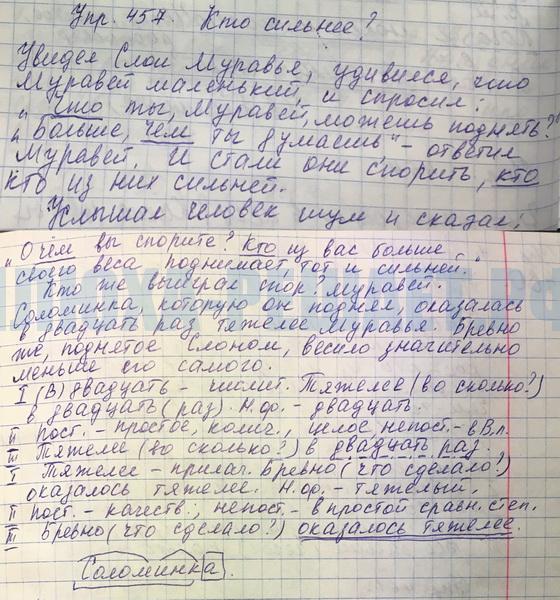 Упр. 457. Кто сильнее?
Увидел Слон Муравья, удивился, что
Муравей маленький, и спросил:
„Что ты, Муравей, можешь поднять?"
„Больше, чем ты думаешь" – ответил
Муравей. И стали они спорить, кто
кто из них сильней.
Услышал человек шум и сказал:
„О чем вы спорите? Кто из вас больше
своего веса поднимает, тот и сильней."
Кто же выиграл спор? Муравей.
Соломинка, которую он поднял, оказалась
в двадцать раз тяжелее Муравья. Бревно
же, поднятое Слоном, весило значительно
меньше его самого.
I (В) двадцать – числит. Тяжелее (во сколько?)
в двадцать (раз). Н.ф. – двадцать.
II пост. – простое, колич., целое, непост. – в В.п.
III Тяжелее (во сколько?) в двадцать раз.
I Тяжелее – прилаг. Бревно (что сделало?)
оказалось тяжелее. Н.ф. – тяжелый.
II пост. – качеств., непост. – в простой сравн. степ.
III Бревно (что сделало?) оказалось тяжелее.
Соломинка.